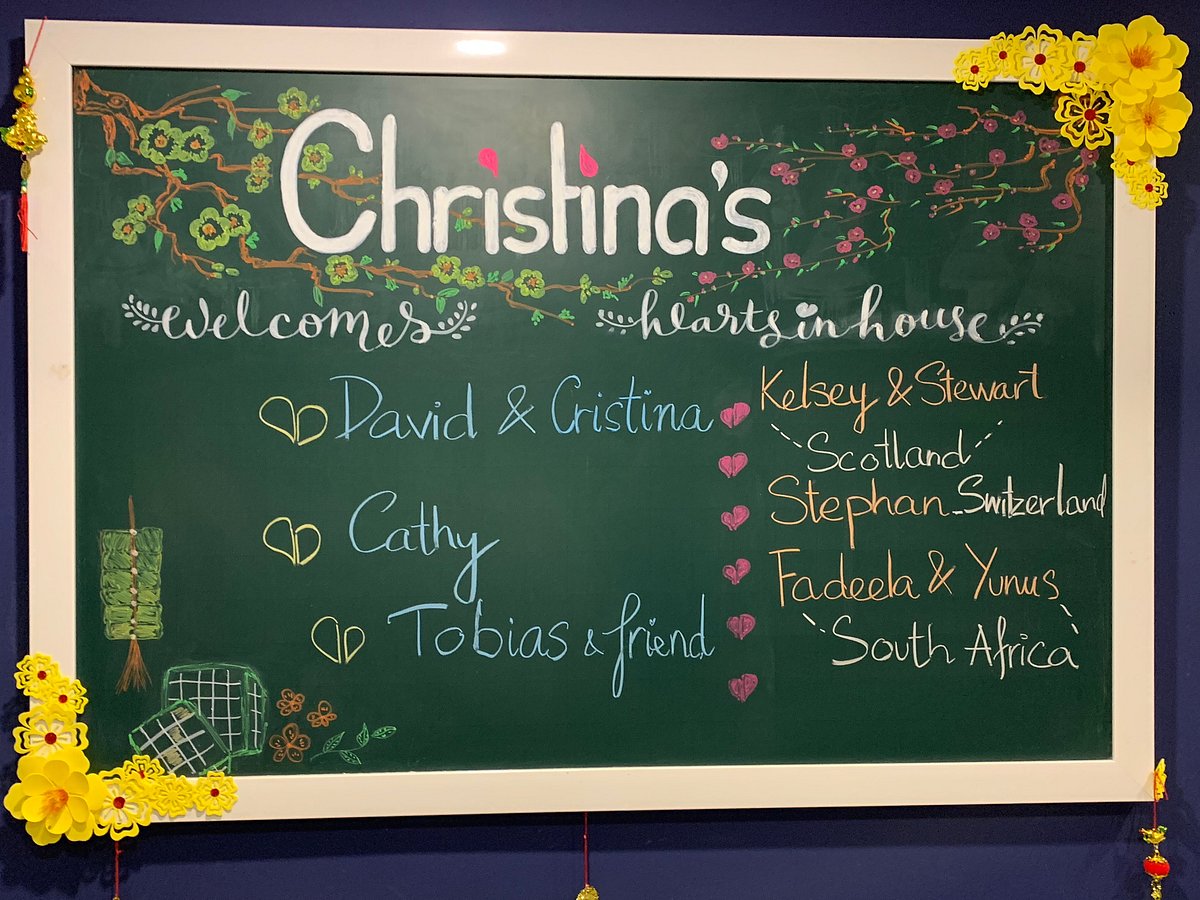 Christina's
welcomes
David & Cristina
Cathy
Tobias & friend
hearts in house
Kelsey & Stewart
Scotland
Stephan - Switzerland
Fadeela & Yunus
South Africa